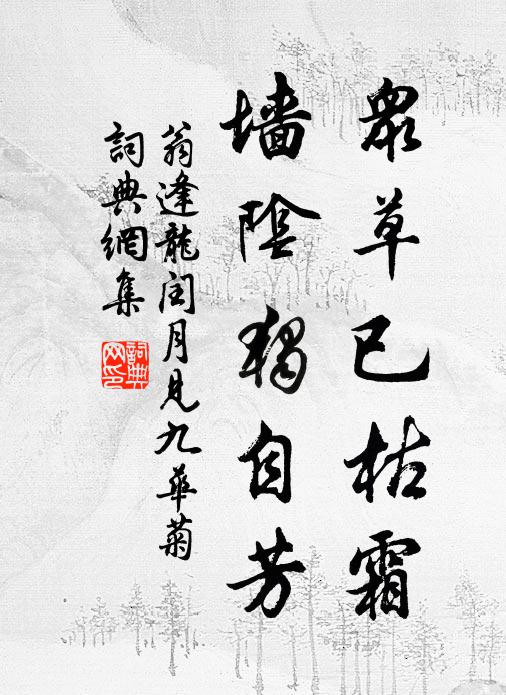 眾草已枯霜
墙陰独自芳
翁逢龍閏月見九華菊
詞典網集
詞典网印